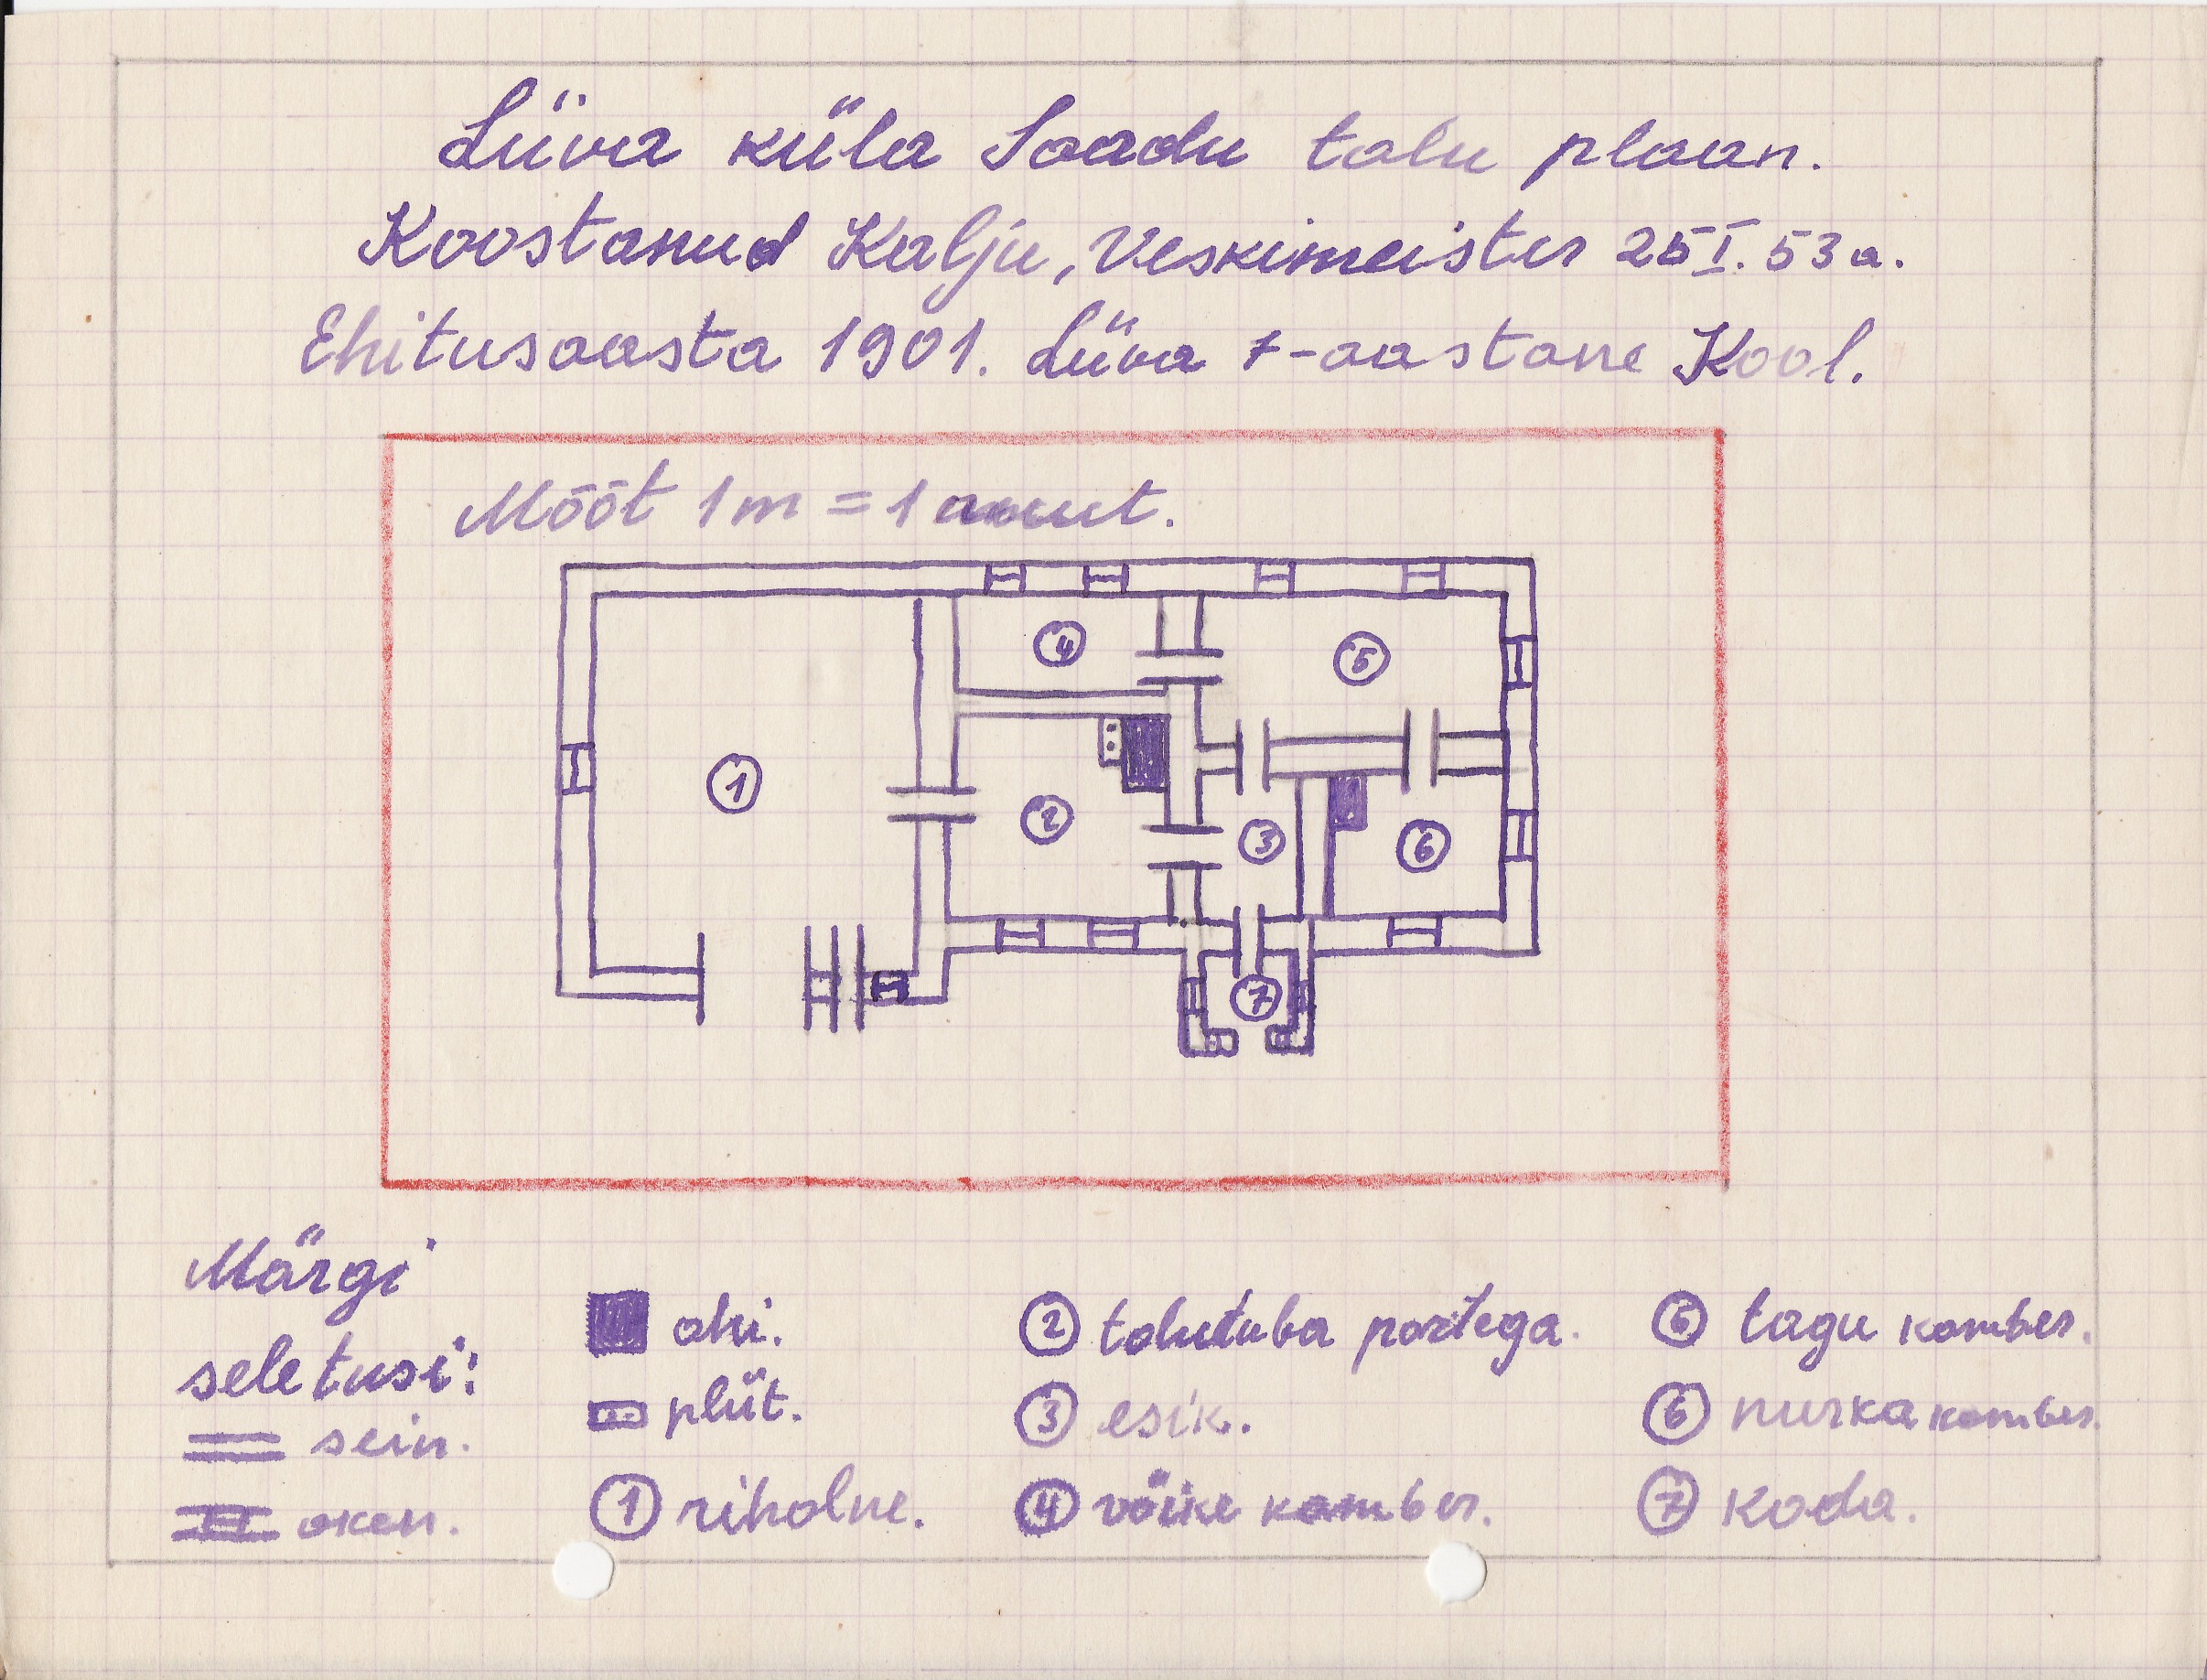 Liiva küla Saadu talu plaan.
Koostanud Kalju, Veskimeister 25 I. 53 a.
Ehitusaasta 1901. Liiva 7-aastane Kool.
Mõõt 1 m = 1 ruut.
4
5
1
2
3
6
7
Märgi
seletusi:
sein.
aken.
ahi.
pliit.
1 rihalne.
2 talutuba partega.
3 esik.
4 väike kamber.
5 tagu kamber.
6 nurka kamber.
7 koda.